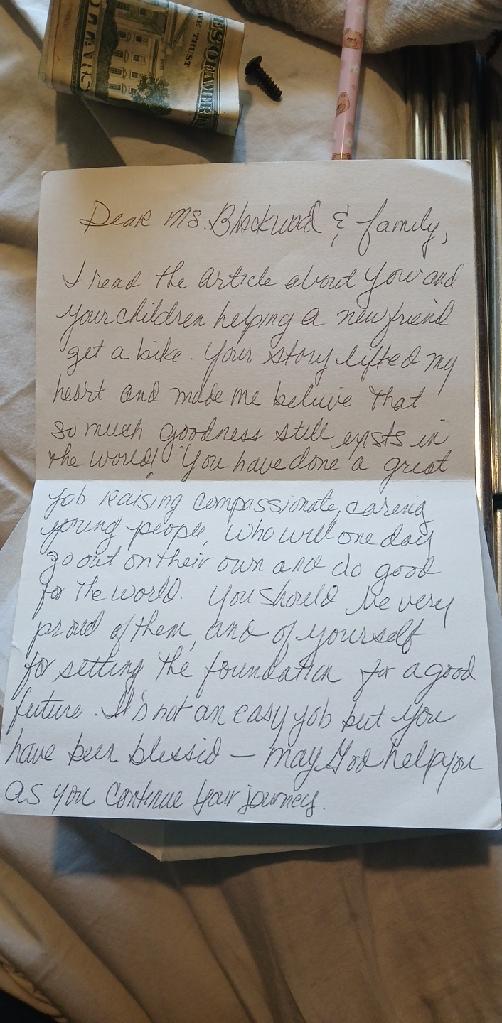 DOLLARS
TRUST
Dear Ms. Blackwood & family,
I read the article about you and
your children helping a new friend
get a bike. Your story lifted my
heart and made me belive that
so much goodness still exists in
the world! You have done a great
job raising compassionate, caring
young people, who will one day
go out on their own and do good
for the world. You should be very
proud of them, and of yourself
for setting the foundation for a good
future. It's not an easy job but you
have been blessed — may God help you
as you continue your journey.